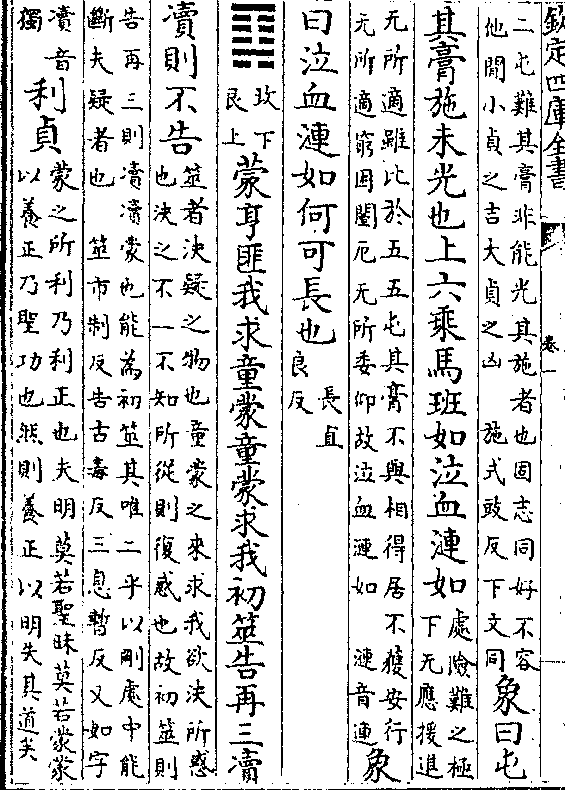 欽定四庫全書
卷一
二屯難其膏非能光其施者也固志同好不容
他閒小貞之吉大貞之凶 施式豉反下文同
象曰屯
其膏施未光也上六乘馬班如泣血漣如
處險難之極
下无應援進
无所適雖比於五五屯其膏不與相得居不獲安行
无所適窮困闉厄无所委仰故泣血漣如 漣音連
象
曰泣血漣如何可長也
長直
良反
䷃
坎下
艮上
蒙亨匪我求童蒙童蒙求我初筮告再三瀆
瀆則不告
筮者決疑之物也童蒙之來求我欲決所惑
也決之不一不知所從則復惑也故初筮則
告再三則瀆瀆蒙也能為初筮其唯二乎以剛處中能
斷夫疑者也 筮市制反告古毒反三息暫反又如字
瀆音
獨
利貞
蒙之所利乃利正也夫明莫若聖昧莫若蒙蒙
以養正乃聖功也然則養正以明失其道矣